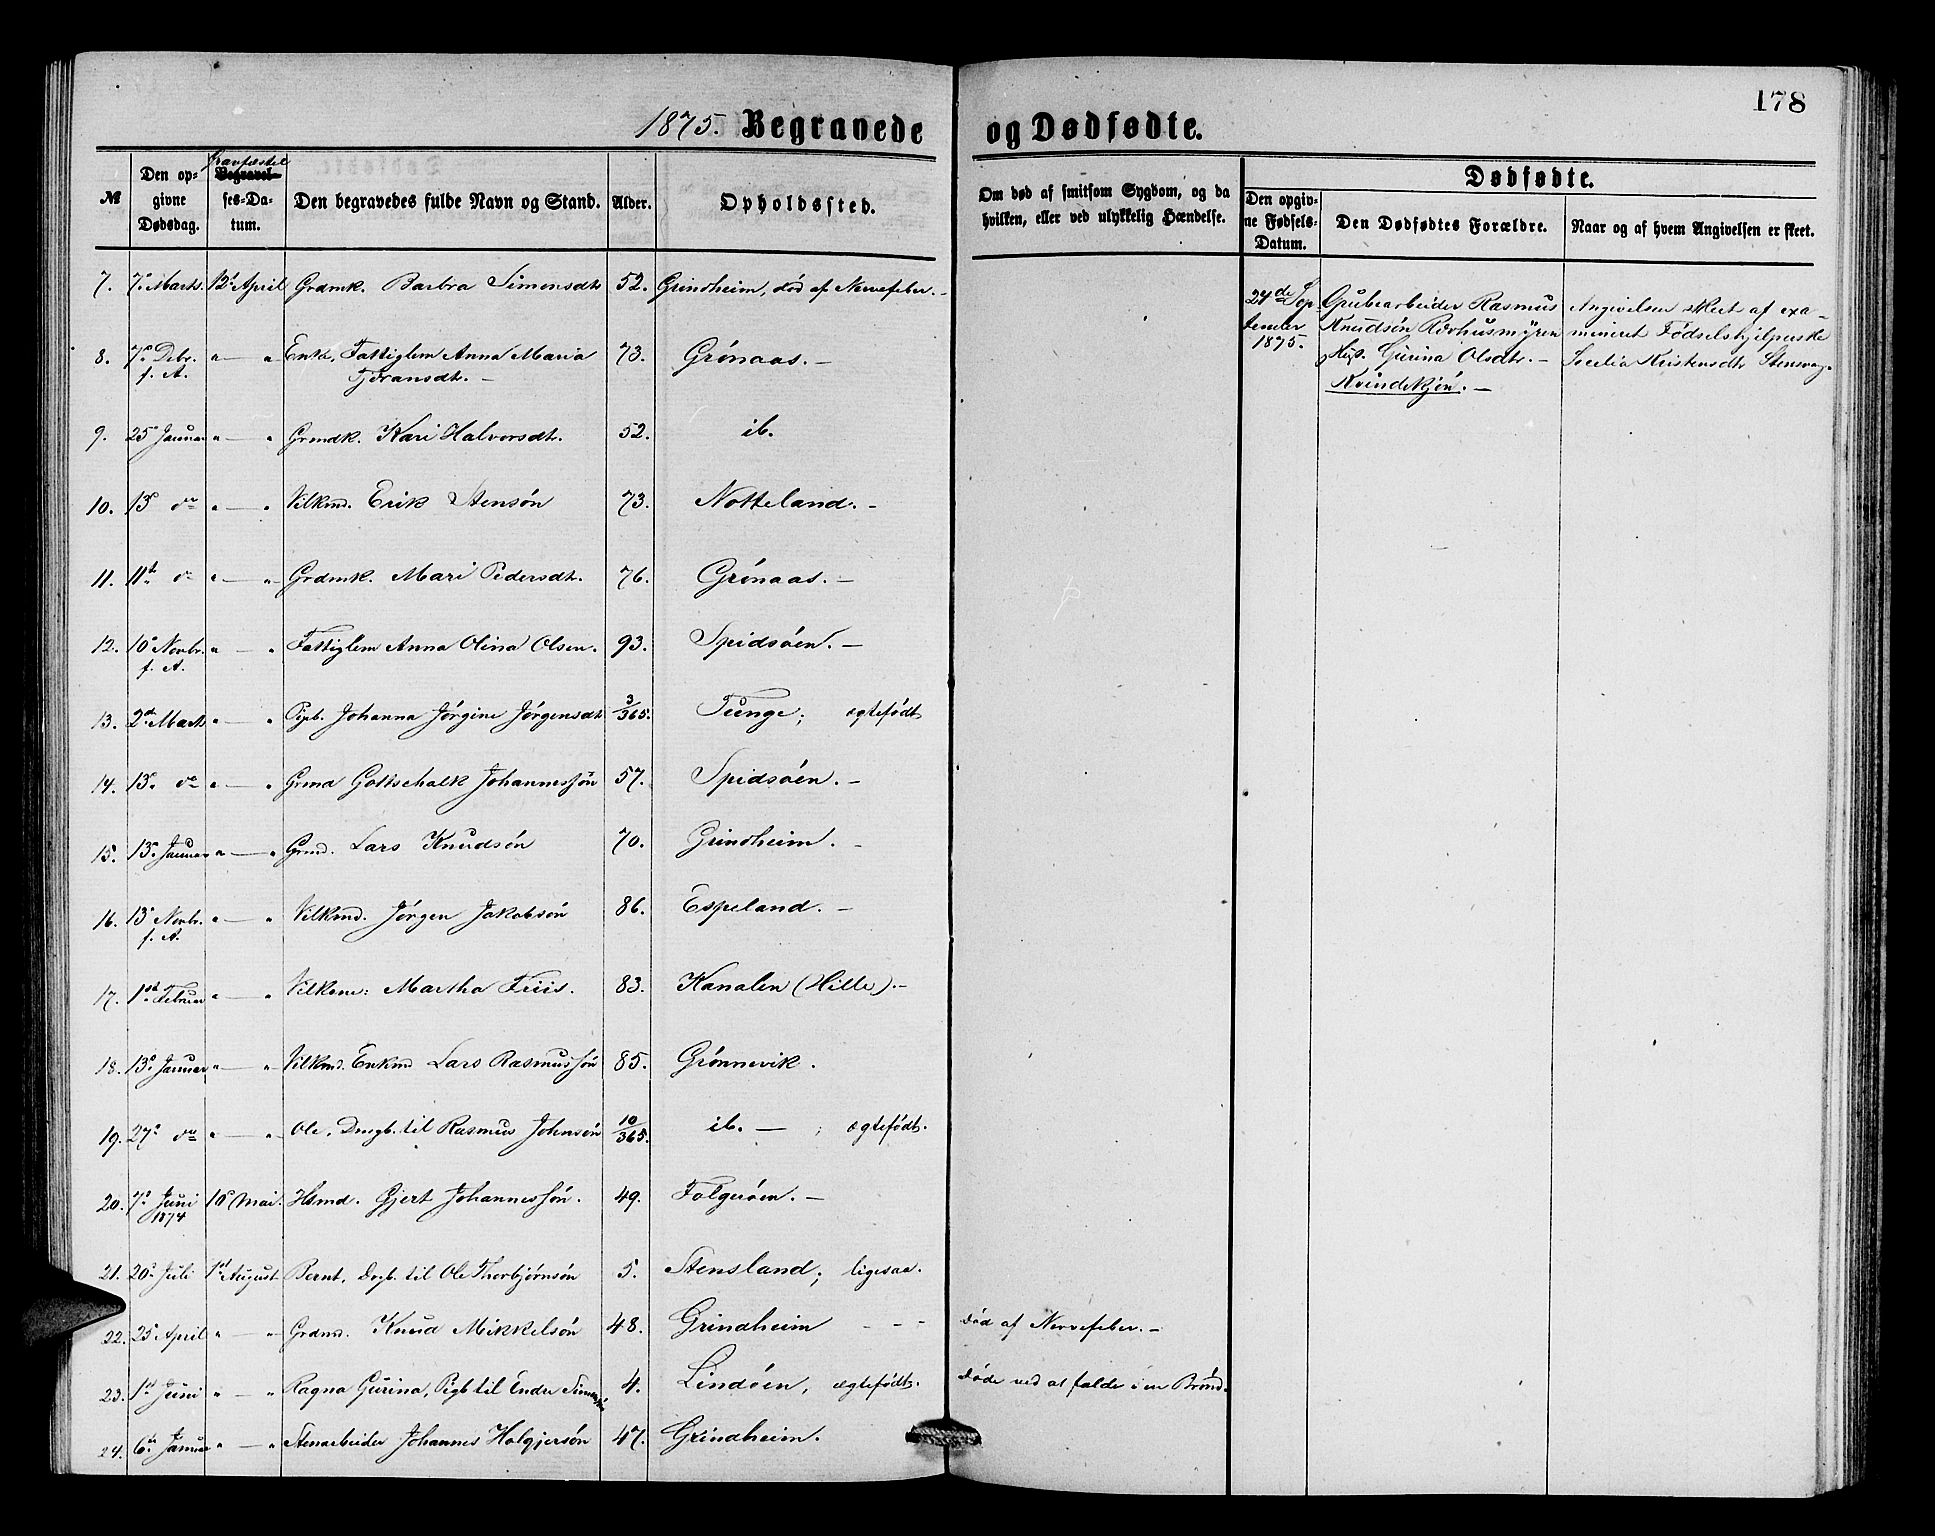 178
1875. Begravede og Dødfødte.
№
Den opgivne Dødsdag.
Gravfæstelses-Datum.
Den begravedes fulde Navn og Stand.
Alder.
Opholdssted.
Om død af smitsom Sygdom, og da hvilken, eller ved ulykkelig Hændelse.
Dødfødte.
Den opgivne Fødsels-Datum.
Den Dødfødtes Forældre.
Naar og af hvem Angivelsen er skeet.
7. 7de Marts. 12te April Grdmk. Barbra Simonsdtr 52. Grindheim, død af Nervefeber. -
8. 7de Debr. f. A. " — " Enke, Fattiglem Anna Maria 73. Grønaas. -
Tjøransdt. -
9. 25de Januar " — " Grmdk. Kari Halvorsdt. 52. ib.
10. 13de do " — " Vilkmd. Erik Stensøn 73. Notteland. -
11. 11te do " — " Grdmk. Mari Pedersdt. 76. Grønaas. -
12. 10de Novbr. f. A. " — " Fattiglem Anna Olina Olsen. 93. Spidsøen. -
13. 2den Marts " — " Pigb. Johanna Jørgine Jørgensdt 3/365. Tunge; ægtefødt
14. 13de do " — " Grmd Gottschalk Johannessøn 57. Spidsøen. -
15. 13de Januar " — " Grmd. Lars Knudsøn 70. Grindheim. -
16. 13de Novbr. f. A. " — " Vilkmd. Jørgen Jakobsøn 86. Espeland. -
17. 1ste Februar " — " Vilkone: Martha Friis. 83. Kanalen (Hille). -
18. 13de Januar " — " Vilkmd. Enkmd Lars Rasmussøn 85. Grønnevik.
19. 27de do " — " Ole, Drngb. til Rasmus Johnsøn 10/365. ib. — ; ægtefødt.
20. 7de Juni 1874 16de Mai. Hsmd. Gjert Johannessøn. 49. Folgerøen. -
21. 20de Juli 1ste August Bernt, Drgb. til Ole Thorbjørnsøn 5. Stensland; ligesaa.
22. 25de April " — " Grdmd. Knud Mikkelsøn 48. Grindheim - - - død af Nervefeber. -
23. 1ste Juni " — " Ragna Gurina, Pigb til Endre Simonsøn 4. Lindøen, ægtefødt. døde ved at falde i en Brønd.
24. 6te Januar " — " Stenarbeider Johannes Holgjersøn 47. Grindheim.
24de September 1875.
Grubearbeider Rasmus
Knudsøn Rævhusmyren
og Gurina Olsdtr. -
Kvindekjøn. -
Angivelsen skeet af exa-
mineret Fødselshjelperske
Secelia Kristensdtr Stensvag.